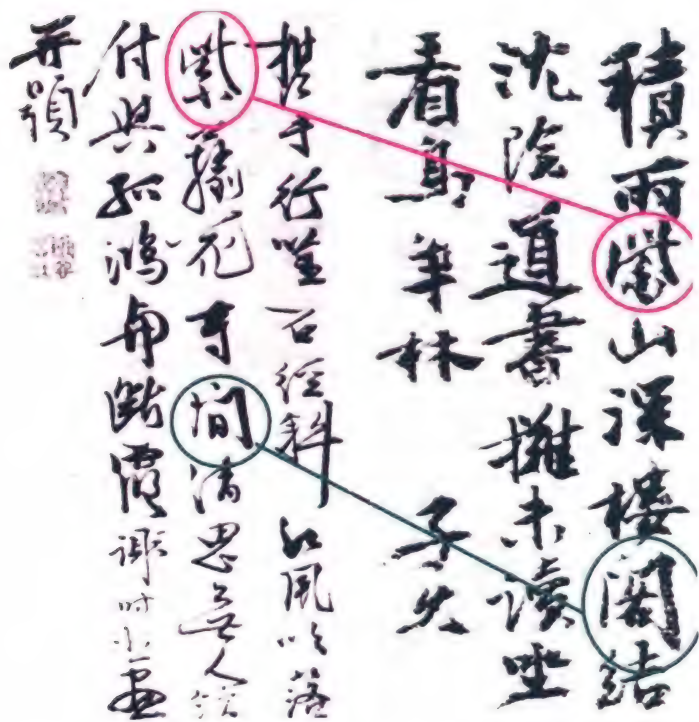 積雨紫山深樓閣結
沈陰道書攤未讀坐
看鳥爭林 子久
携手行坐石徑斜 風吹落
紫藤花 間清思無人
付與孤鴻與斷霞 謝時臣畫
并題